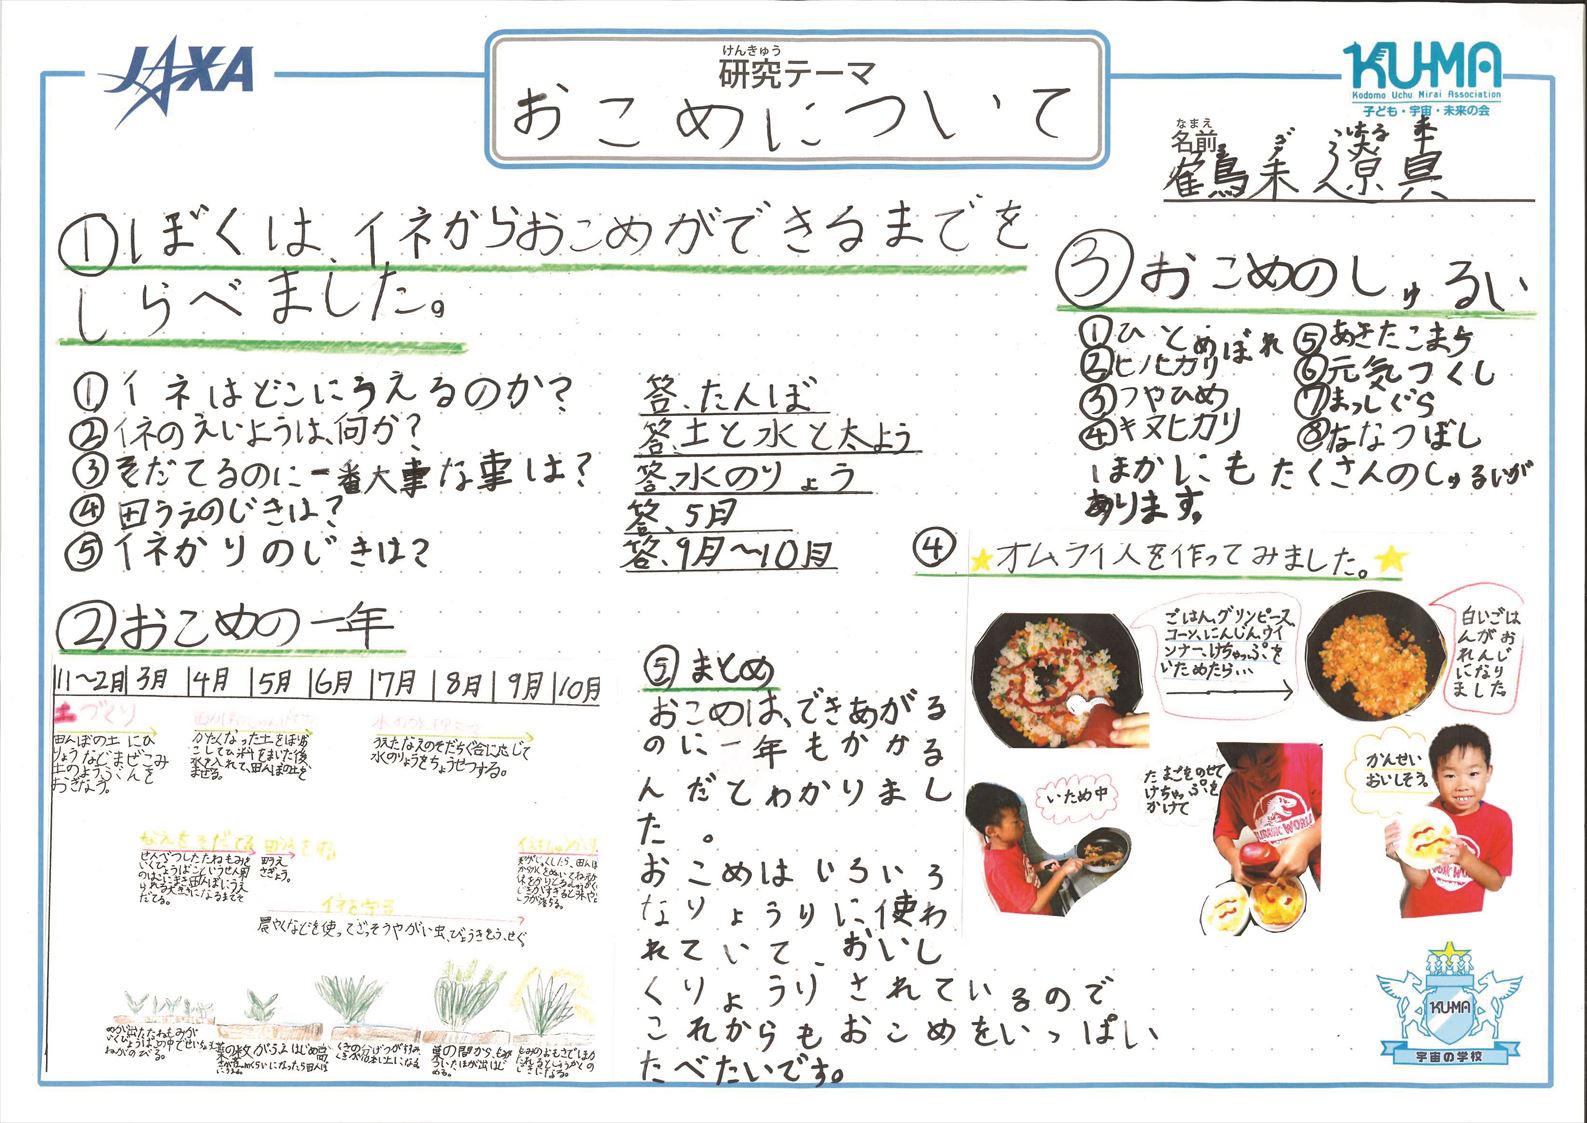 JAXA
けんきゅう
研究テーマ
おこめについて
KUMA
Kodomo Uchu Mirai Association
子ども・宇宙・未来の会
なまえ
名前
鶴来 遼真
①ぼくは、イネからおこめができるまでを
しらべました。
①イネはどこにうえるのか？ 答、たんぼ
②イネのえいようは、何か？ 答、土と水と太よう
③そだてるのに一番大事な事は？ 答、水のりょう
④田うえのじきは？ 答、5月
⑤イネかりのじきは？ 答、9月〜10月
②おこめの一年
11〜2月 3月 4月 5月 6月 7月 8月 9月 10月
土づくり
田んぼの土にひ
りょうなじまぜこみ
土のようぶんを
おぎなう。
かたくなった土をほりお
こしてひ料をまいた後、
水を入れて、田んぼの土を
まぜる。
うえたなえのそだちぐ合に応じて
水のりょうをちょうせつする。
なえをそだてる 田うえをする
田うえ
さぎょう。
イネを守る
農やくなどを使ってざっそうやがい虫、びょうきをふせぐ
③おこめのしゅるい
①ひとめぼれ
②ヒノヒカリ
③つやひめ
④キヌヒカリ
⑤あきたこまち
⑥元気つくし
⑦まっしぐら
⑧ななつぼし
ほかにもたくさんのしゅるいが
あります。
④ ★オムライスを作ってみました。★
ごはん、グリンピース、
コーン、にんじん、ウイ
ンナー、けちゃっぷを
いためたら…
白いごは
んがお
れんじ
になり
ました
いため中
たまごをのせて
けちゃっぷを
かけて
かんせい
おいしそう。
⑤まとめ
おこめは、できあがる
のに一年もかかる
んだとわかりまし
た。
おこめはいろいろ
なりょうりに使わ
れていて、おいし
くりょうりされているので
これからもおこめをいっぱい
たべたいです。
KUMA
宇宙の学校